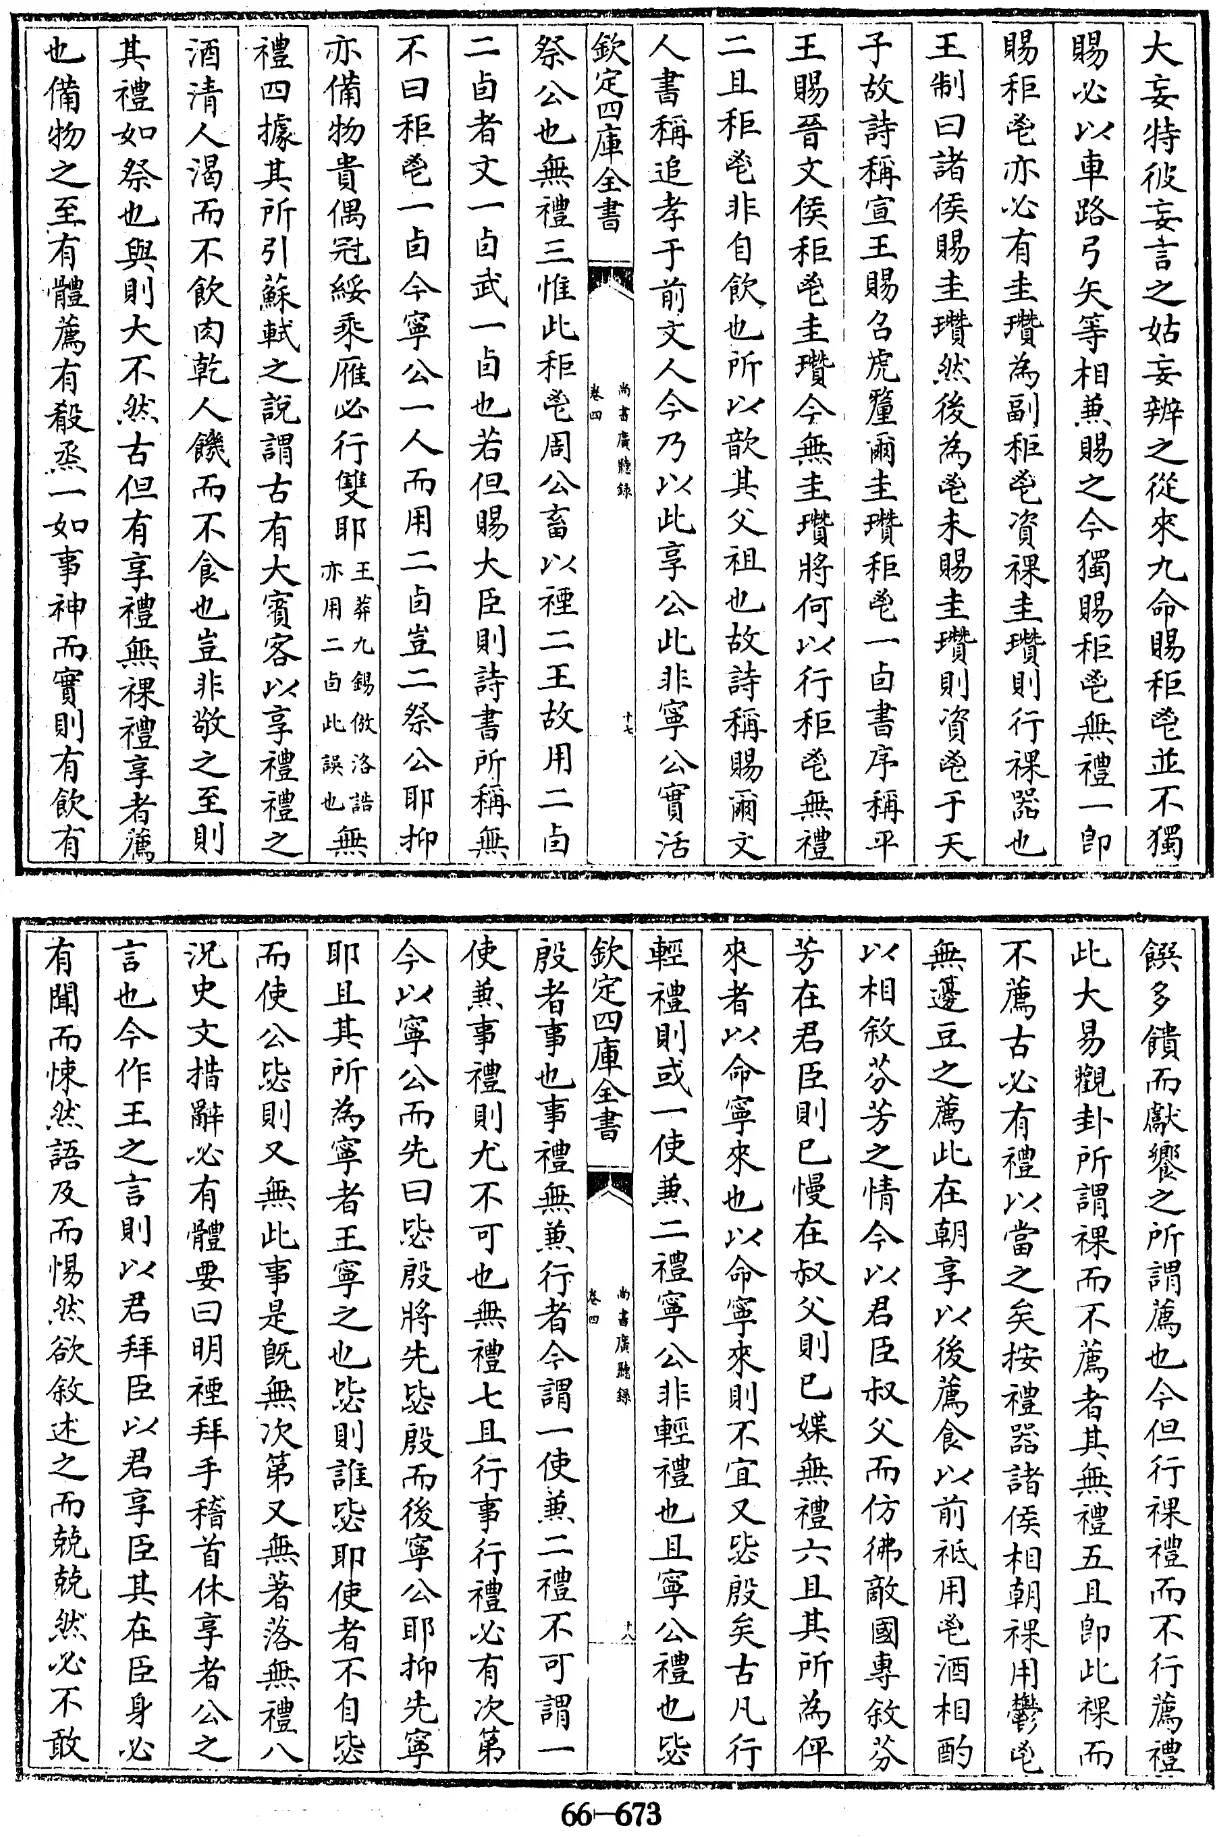 大妄特彼妄言之姑妄辨之從來九命賜秬鬯並不獨
賜必以車路弓矢等相兼賜之今獨賜秬鬯無禮一卽
賜秬鬯亦必有圭瓚為副秬鬯資祼圭瓚則行祼器也
王制曰諸侯賜圭瓚然後為鬯未賜圭瓚則資鬯于天
子故詩稱宣王賜召虎釐爾圭瓚秬鬯一卣書序稱平
王賜晉文侯秬鬯圭瓚今無圭瓚將何以行秬鬯無禮
二且秬鬯非自飲也所以歆其父祖也故詩稱賜爾文
人書稱追孝于前文人今乃以此享公此非寧公實活
欽定四庫全書
尚書廣聽錄
卷四
十七
祭公也無禮三惟此秬鬯周公畜以禋二王故用二卣
二卣者文一卣武一卣也若但賜大臣則詩書所稱無
不曰秬鬯一卣今寧公一人而用二卣豈二祭公耶抑
亦備物貴偶冠綏乘雁必行雙耶王莽九錫倣洛誥亦用二卣此誤也無
禮四據其所引蘇軾之說謂古有大賓客以享禮禮之
酒清人渴而不飲肉乾人饑而不食也豈非敬之至則
其禮如祭也與則大不然古但有享禮無祼禮享者薦
也備物之至有體薦有殽烝一如事神而實則有飲有
饌多饋而獻饗之所謂薦也今但行祼禮而不行薦禮
此大易觀卦所謂祼而不薦者其無禮五且卽此祼而
不薦古必有禮以當之矣按禮器諸侯相朝祼用鬱鬯
無籩豆之薦此在朝享以後薦食以前祇用鬯酒相酌
以相敘芬芳之情今以君臣叔父而仿彿敵國專敘芬
芳在君臣則已慢在叔父則已媟無禮六且其所為伻
來者以命寧來也以命寧來則不宜又毖殷矣古凡行
輕禮則或一使兼二禮寧公非輕禮也且寧公禮也毖
欽定四庫全書
尚書廣聽錄
卷四
十八
殷者事也事禮無兼行者今謂一使兼二禮不可謂一
使兼事禮則尤不可也無禮七且行事行禮必有次第
今以寧公而先曰毖殷將先毖殷而後寧公耶抑先寧
耶且其所為寧者王寧之也毖則誰毖耶使者不自毖
而使公毖則又無此事是旣無次第又無著落無禮八
況史文措辭必有體要曰明禋拜手稽首休享者公之
言也今作王之言則以君拜臣以君享臣其在臣身必
有聞而悚然語及而惕然欲敘述之而兢兢然必不敢
66—673